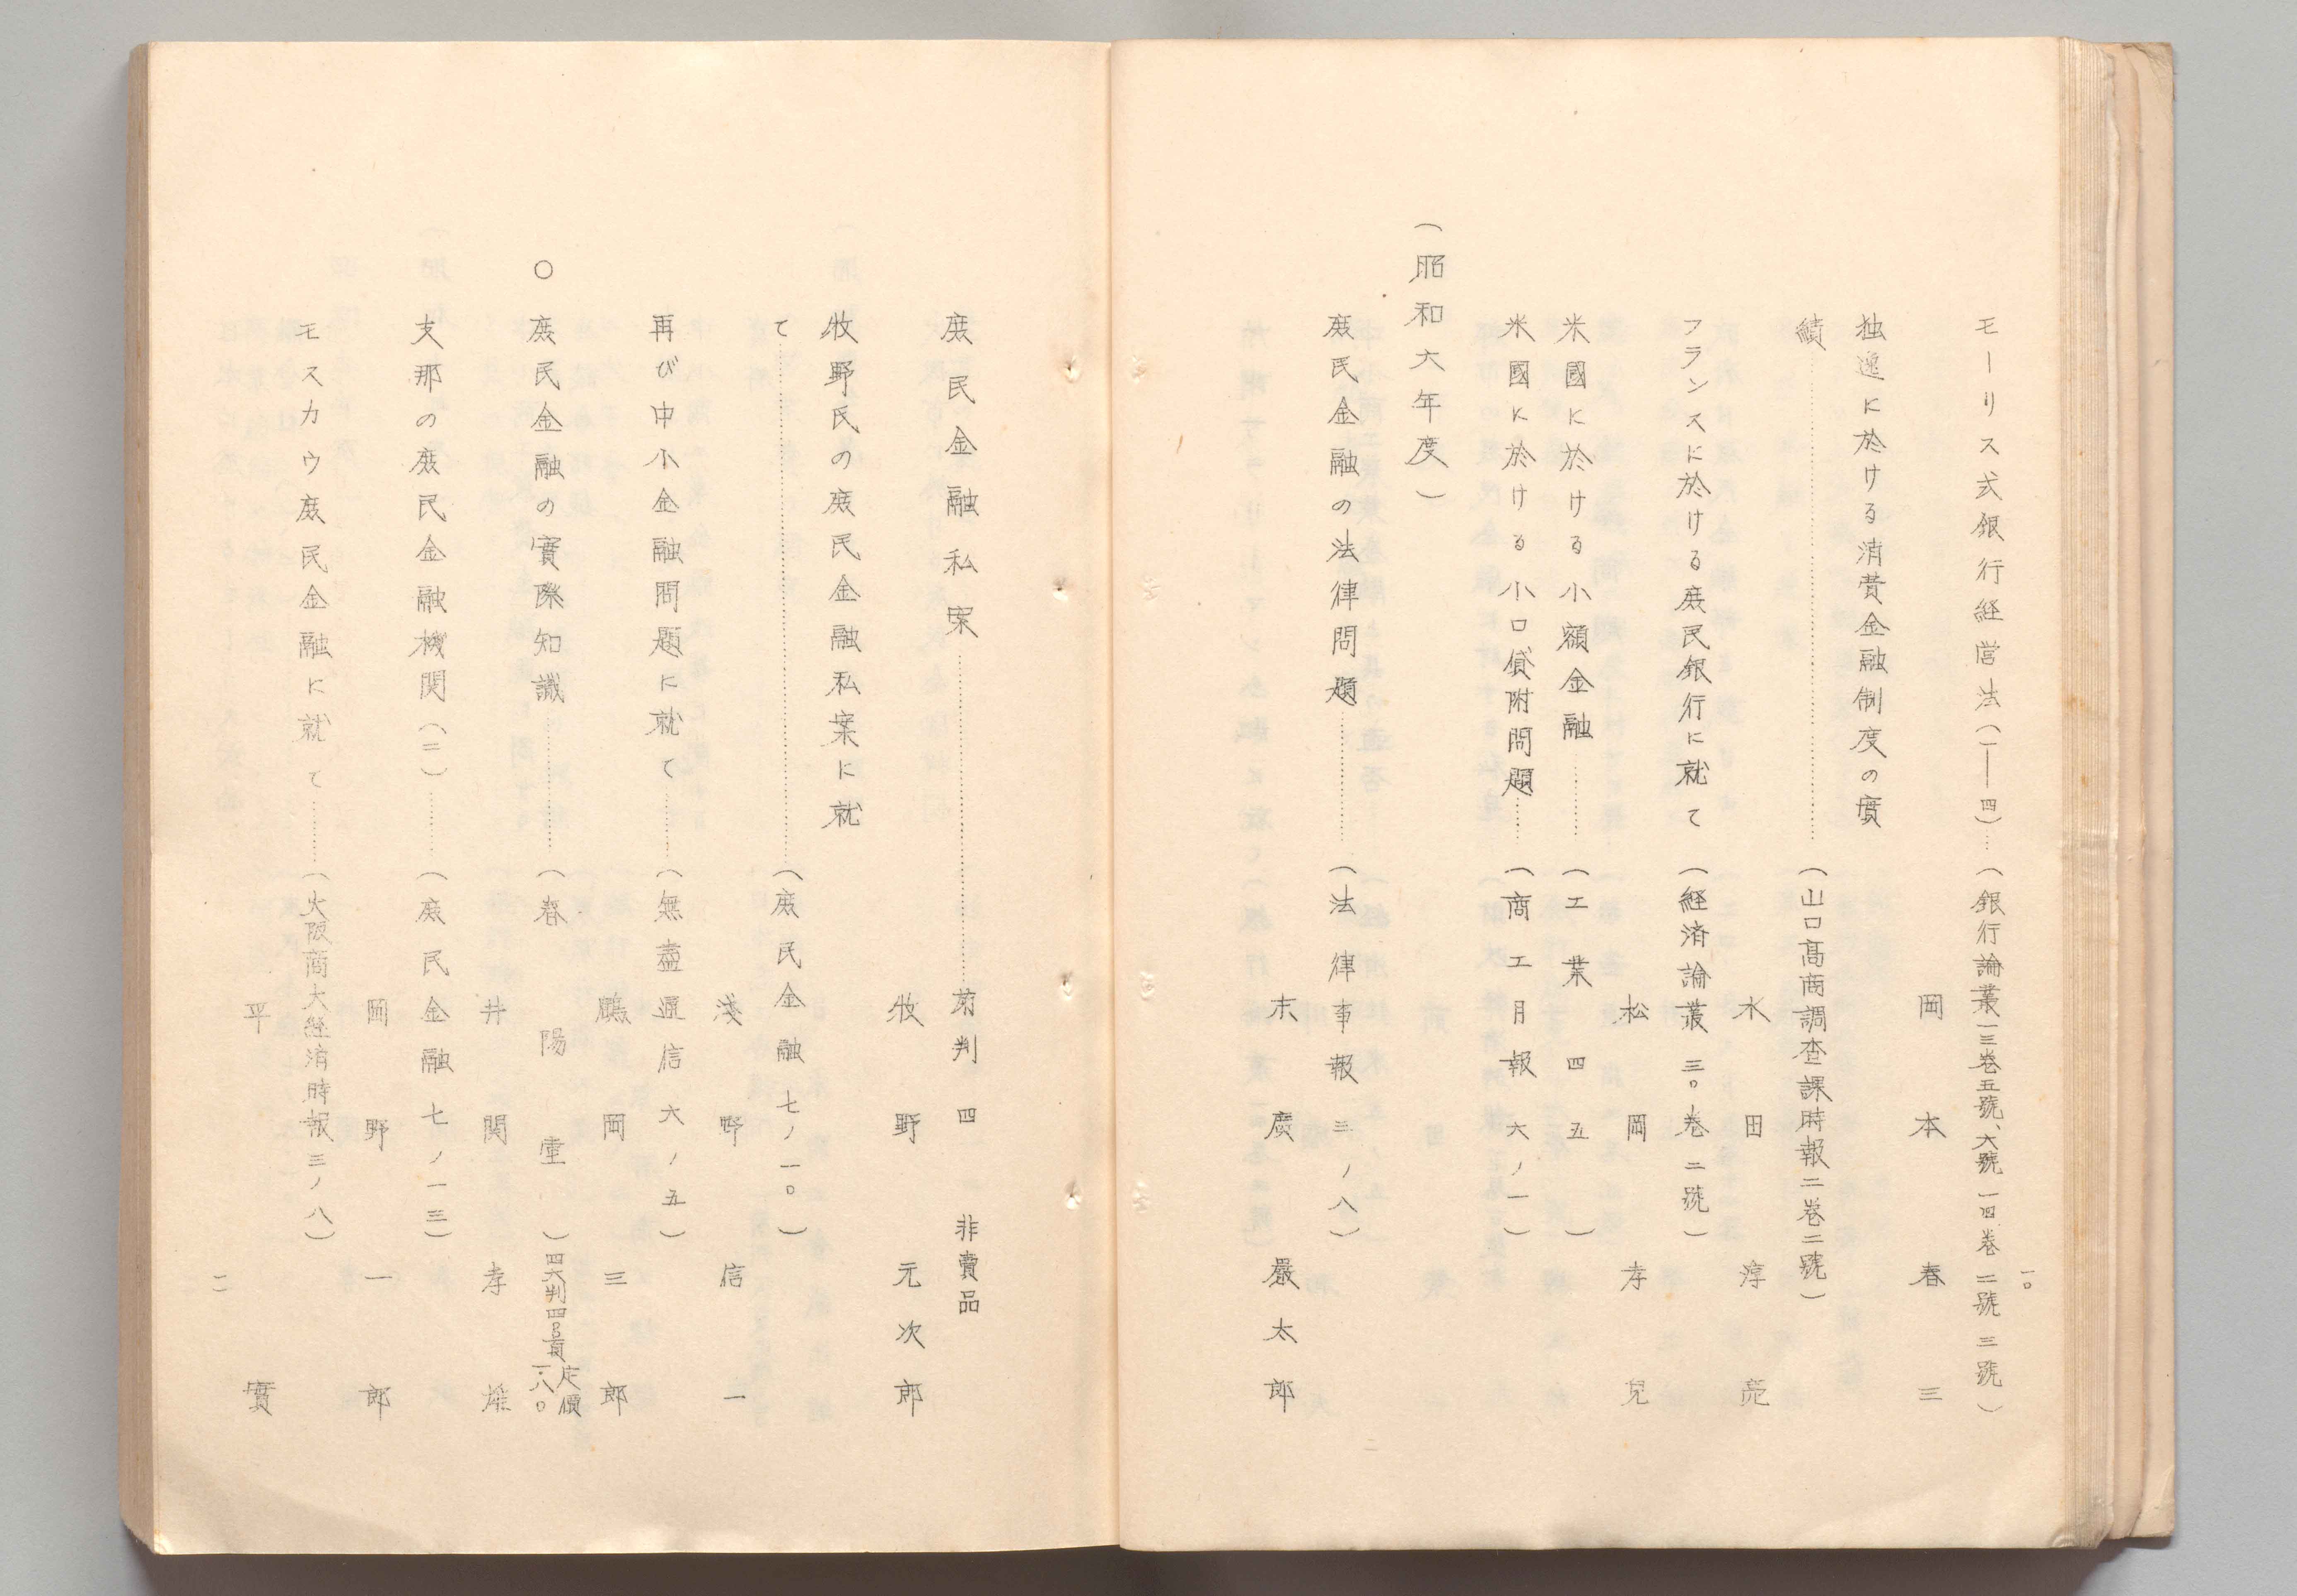 一〇
モーリス式銀行経営法(一―四)…(銀行論叢一三巻五號、六號 一四巻 二號 三號)
岡本春三
独逸に於ける消費金融制度の實
績……(山口高商調査課時報二巻二號)
水田淳亮
フランスに於ける庶民銀行に就て(経済論叢三〇巻二號)
松岡孝児
米國に於ける小額金融……(工業四五)
米國に於ける小口貸附問題……(商工月報六ノ一)
(昭和六年度)
庶民金融の法律問題……(法律事報三ノ八)
末廣嚴太郎
庶民金融私案……菊判四 非賣品
牧野元次郎
牧野氏の庶民金融私案に就
て……(庶民金融七ノ一〇)
淺野信一
再び中小金融問題に就て……(無盡通信六ノ五)
鵰岡三郎
○庶民金融の實際知識……(春陽堂)四六判四〇〇頁 定價一・八〇
井関孝雄
支那の庶民金融機関(二)……(庶民金融七ノ一三)
岡野一郎
モスカウ庶民金融に就て……(大阪商大経済時報三ノ八)
平實
一一